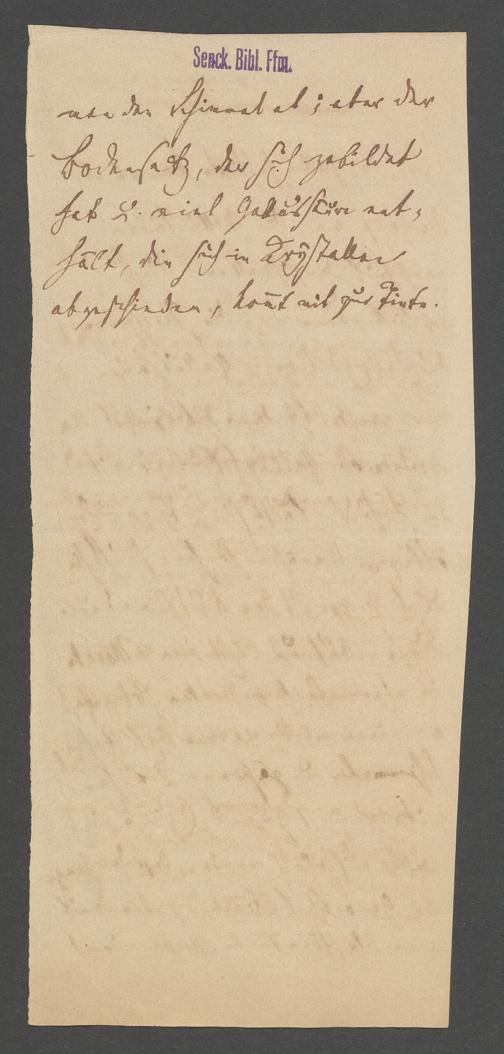 Senck. Bibl. Ffm.
man den Schimmel ab; aber der
Bodensatz, der sich gebildet
hat u. viel Gallussäure ent-
hält, die sich in Krystallen
abgeschieden, kom̄t mit zur Tinte.